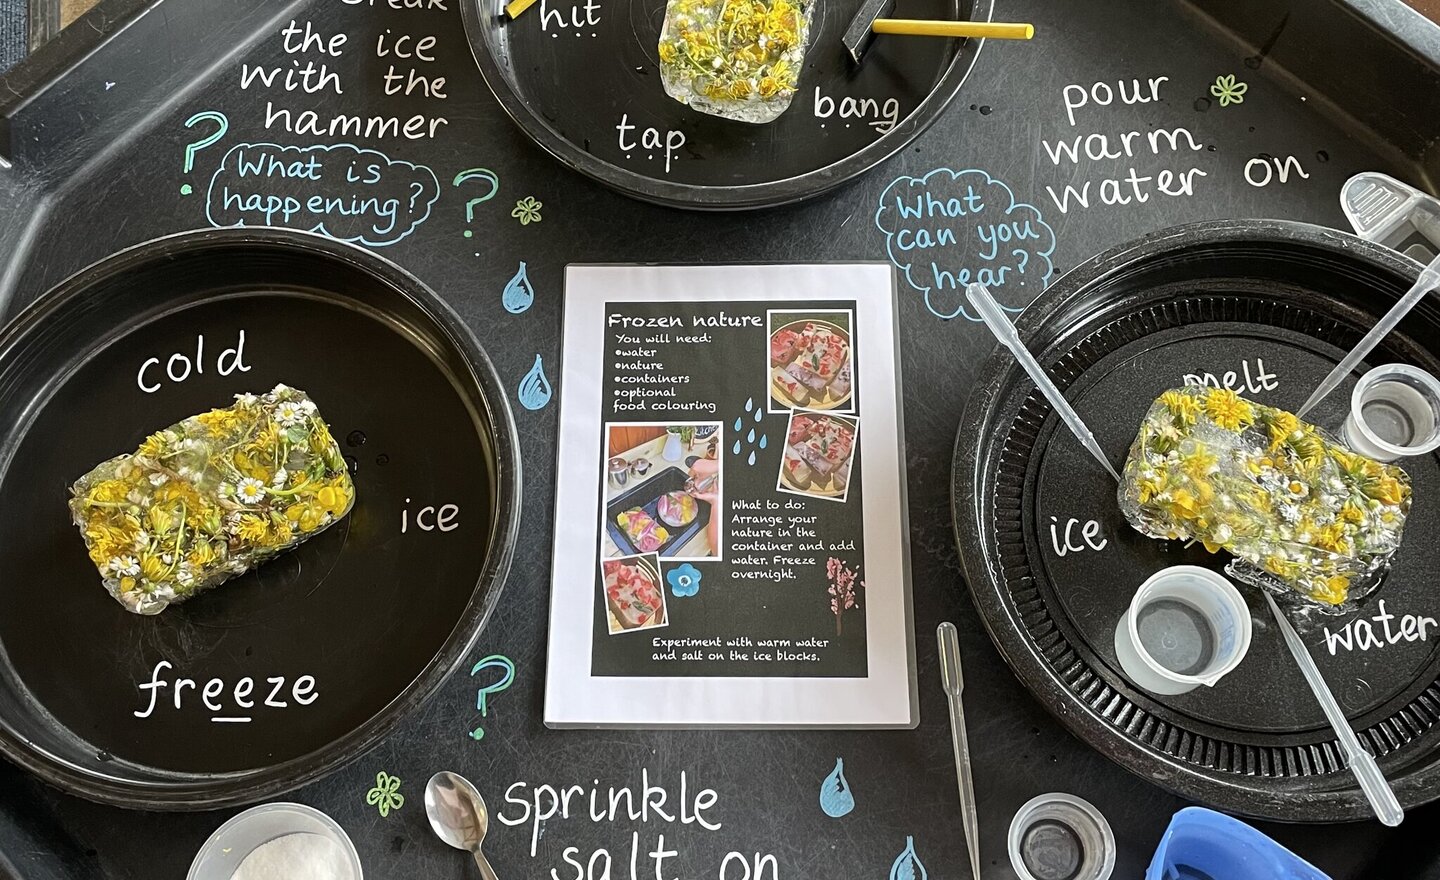 break
the ice
with the
hammer
What is
happening?
?
?
hit
tap
bang
pour
warm
water on
What
can you
hear?
cold
ice
freeze
Frozen nature
You will need:
•water
•nature
•containers
•optional
food colouring
What to do:
Arrange your
nature in the
container and add
water. Freeze
overnight.
Experiment with warm water
and salt on the ice blocks.
melt
ice
water
?
sprinkle
salt on